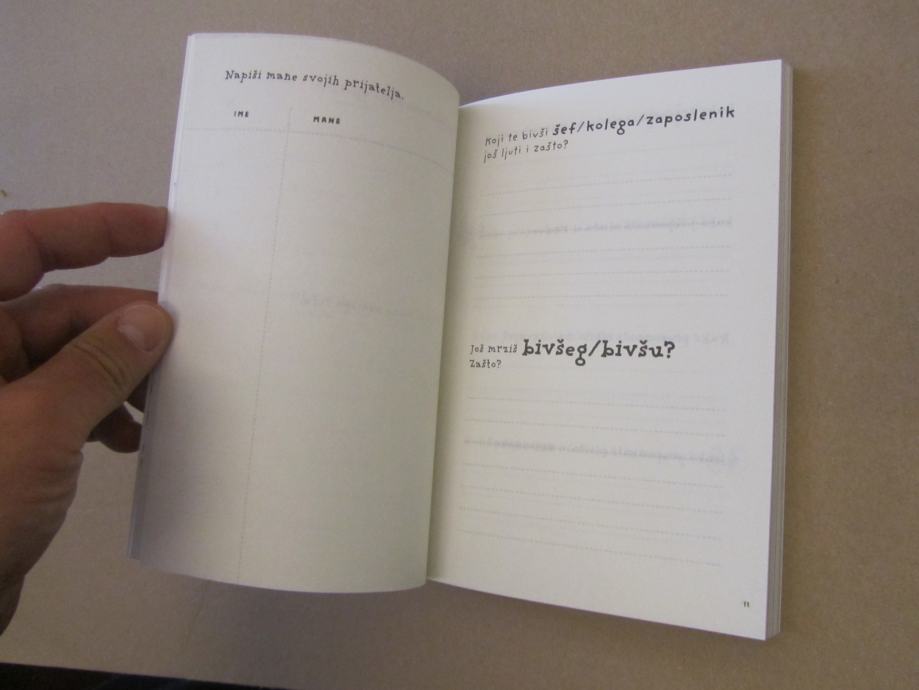 Napiši mane svojih prijatelja.
IME MANE
Koji te bivši šef/kolega/zaposlenik
još ljuti i zašto?
Još mrziš bivšeg/bivšu?
Zašto?
11